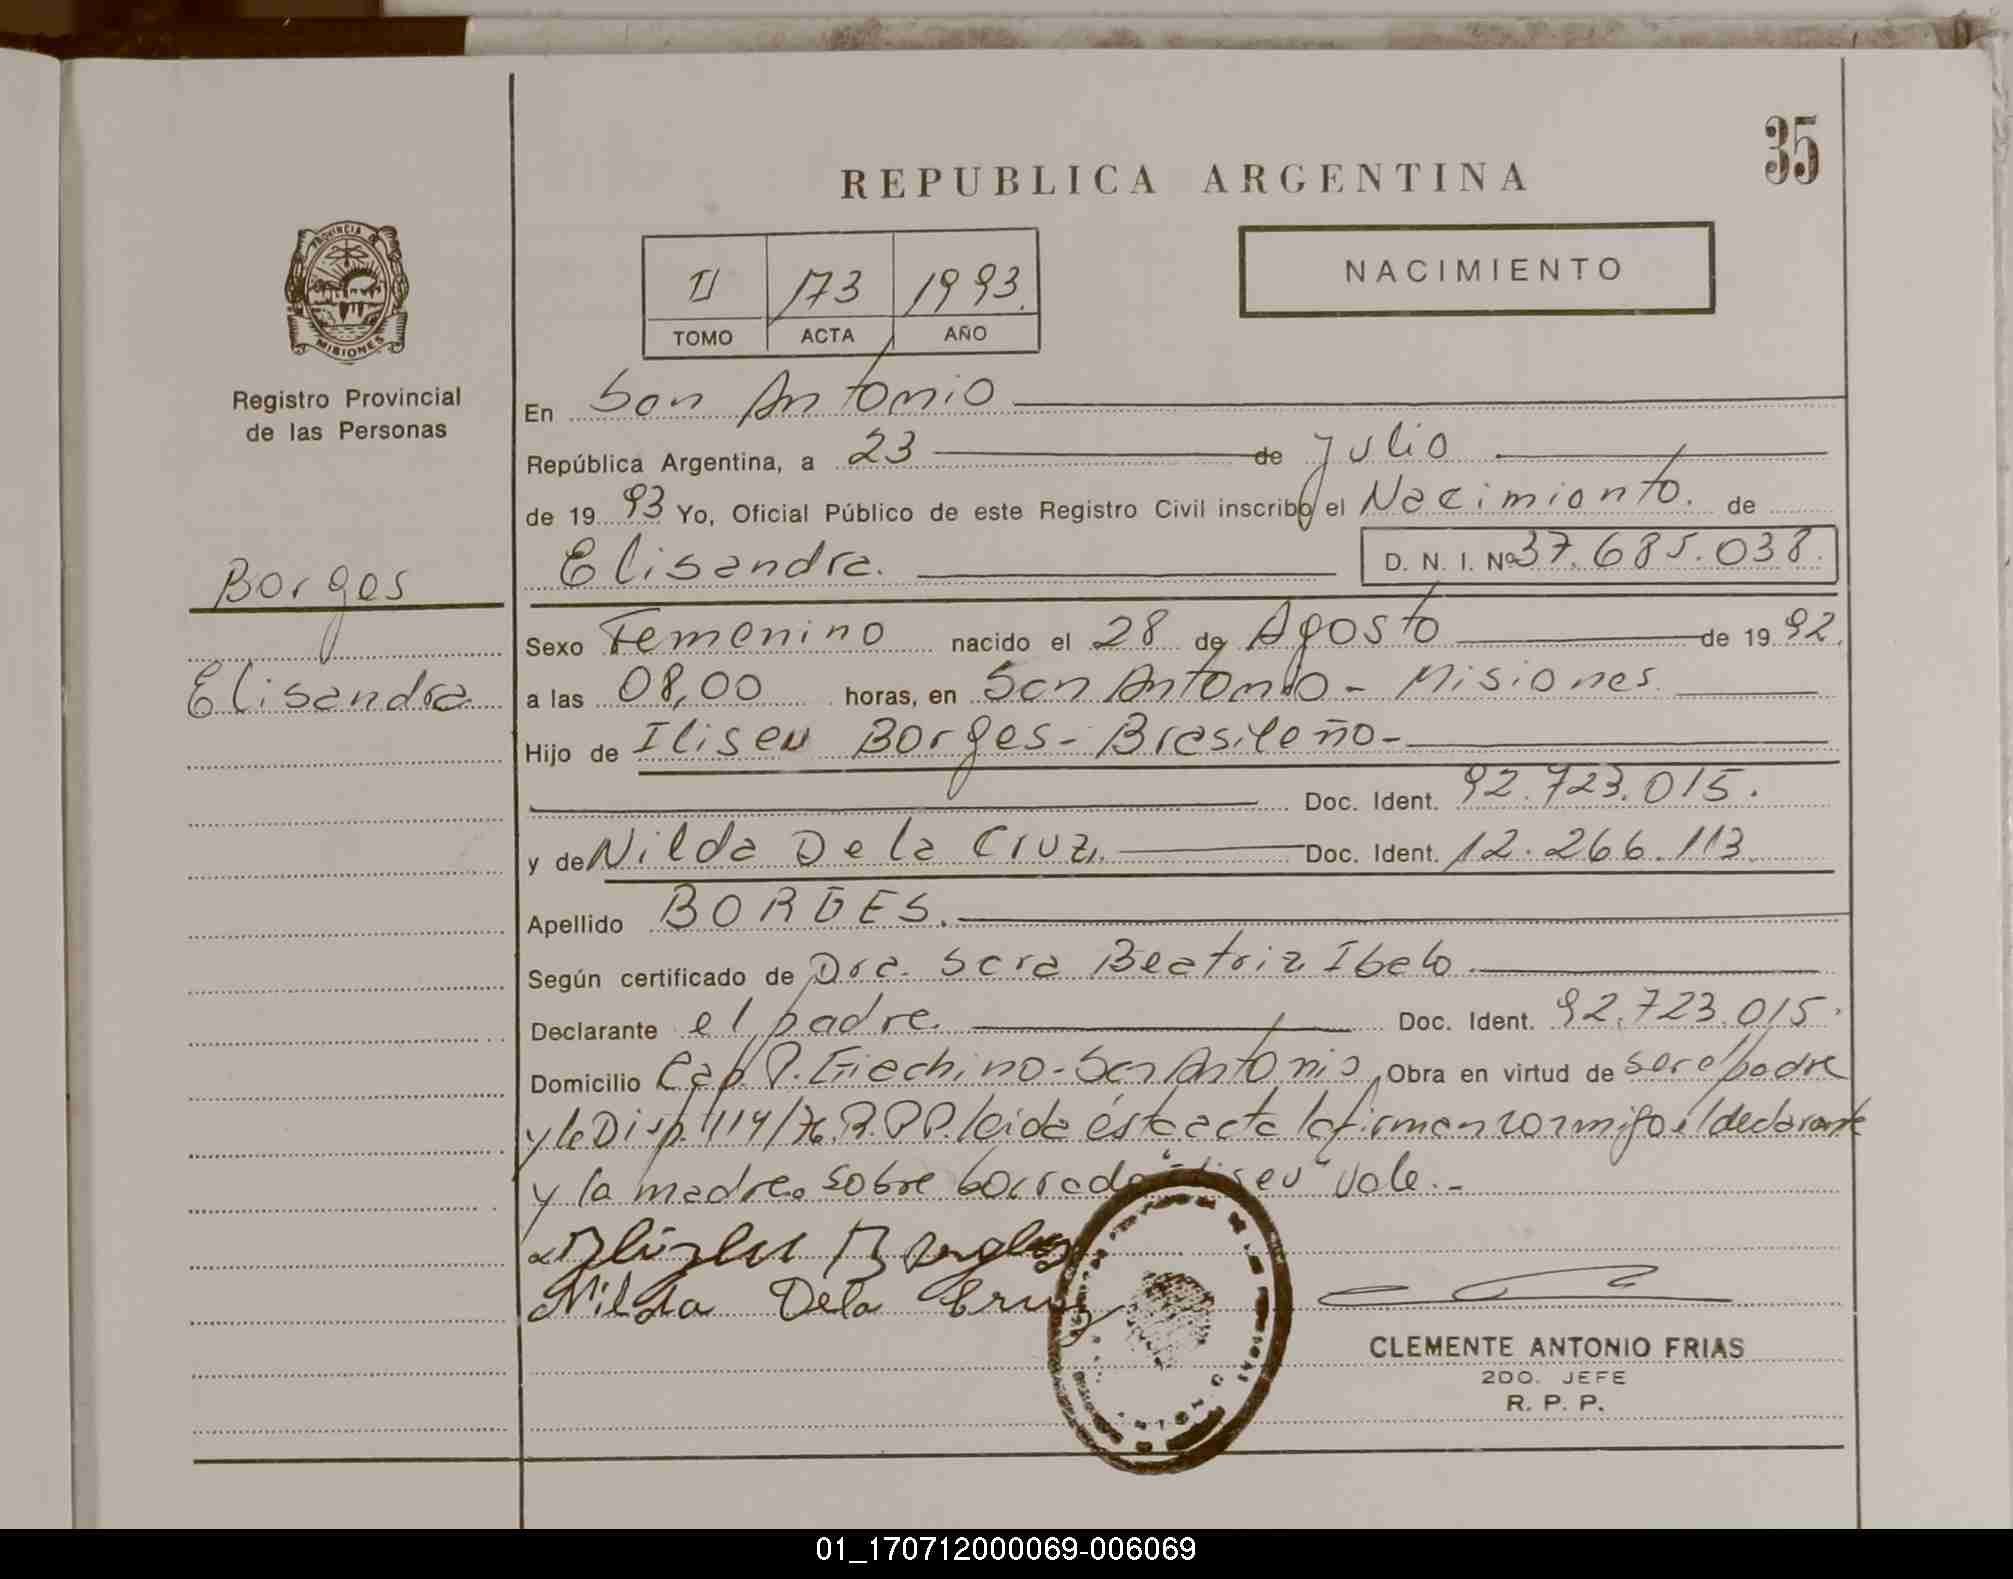 35
REPUBLICA ARGENTINA
PROVINCIA DE
MISIONES
Registro Provincial
de las Personas
II 173 1993.
TOMO ACTA AÑO
NACIMIENTO
En San Antonio
República Argentina, a 23 de Julio
de 19 93 Yo, Oficial Público de este Registro Civil inscribo el Nacimiento. de
Elisandra. D. N. I. Nº 37.685.038.
Borges
Elisandra
Sexo Femenino nacido el 28 de Agosto de 19 92.
a las 08,00 horas, en San Antonio - Misiones
Hijo de Iliseu Borges - Brasileño -
Doc. Ident. 92.723.015.
y de Nilda De la Cruz. Doc. Ident. 12.266.113
Apellido BORGES.
Según certificado de Dra. Sara Beatriz Ibalo
Declarante el padre Doc. Ident. 92.723.015.
Domicilio Cap. P. Giachino - San Antonio Obra en virtud de ser el padre
y la Disp. 114/76. R.P.P. leida ésta acta la firman conmigo el declarante
y la madre. sobre borrado "Iliseu" Vale. -
Borges
Nilda De la Cruz
CLEMENTE ANTONIO FRIAS
2DO. JEFE
R. P. P.
01_170712000069-006069